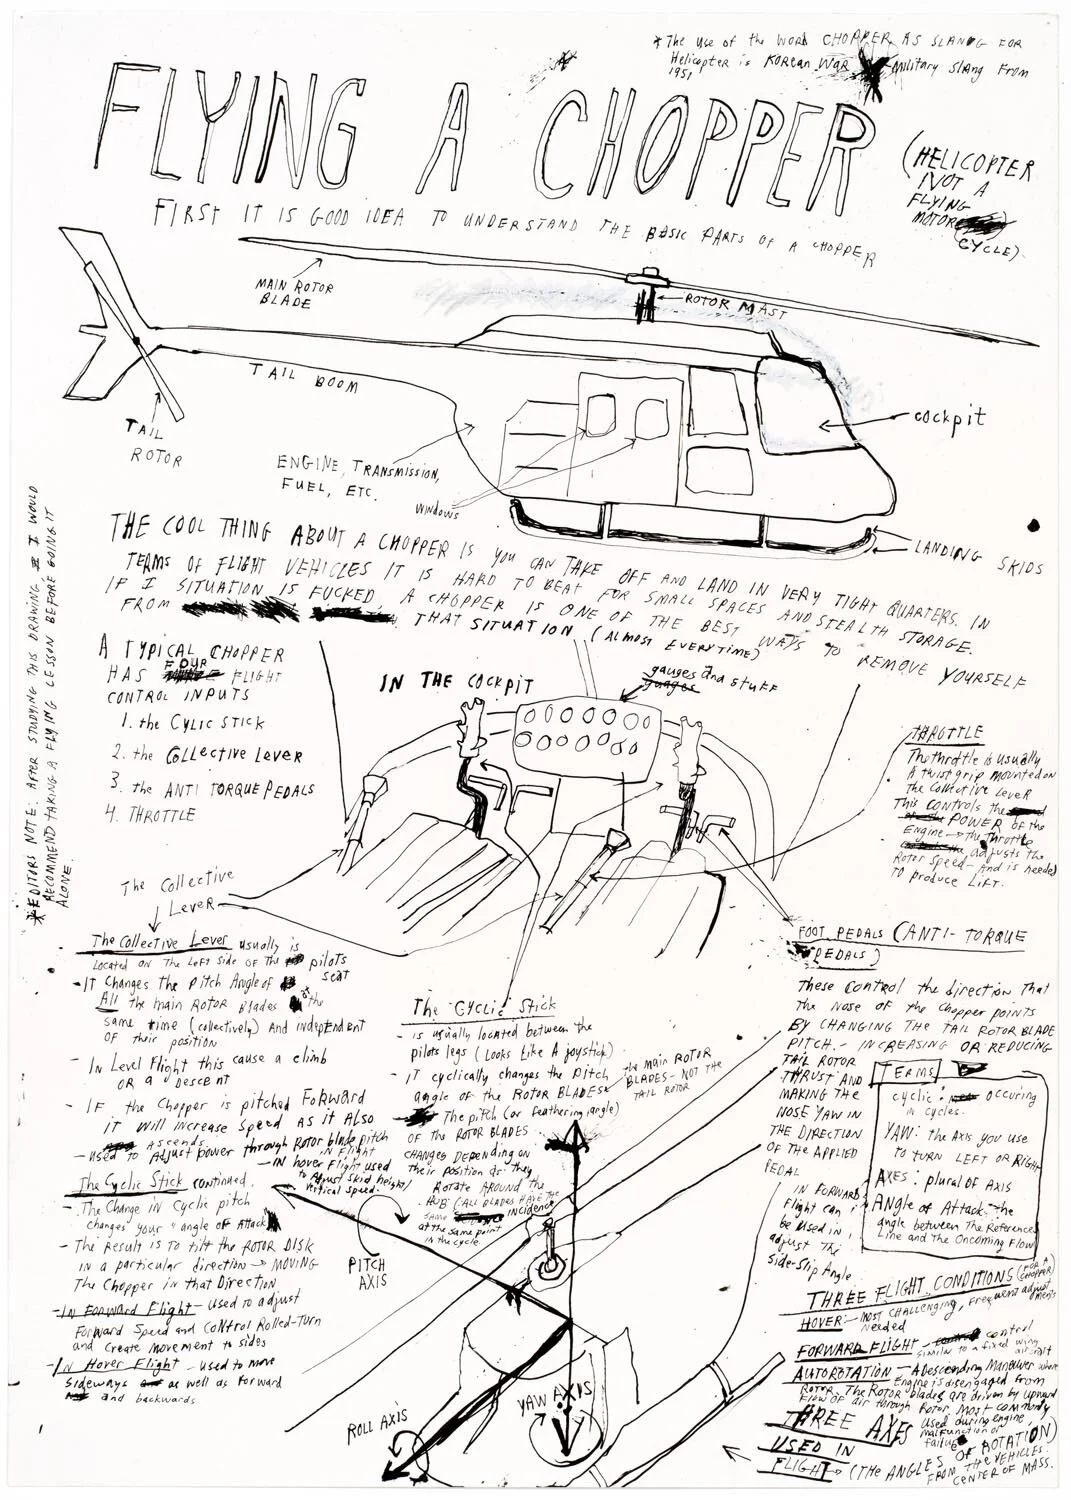 *The use of the WORD CHOPPER AS SLANG FOR
Helicopter is Korean War Military Slang From
1951
FLYING A CHOPPER
(HELICOPTER
NOT A
FLYING
MOTOR
CYCLE)
FIRST IT IS GOOD IDEA TO UNDERSTAND THE BASIC PARTS OF A CHOPPER
MAIN ROTOR
BLADE
ROTOR MAST
TAIL BOOM
TAIL
ROTOR
cockpit
ENGINE, TRANSMISSION,
FUEL, ETC.
WINDOWS
LANDING SKIDS
THE COOL THING ABOUT A CHOPPER IS YOU CAN TAKE OFF AND LAND IN VERY TIGHT QUARTERS. IN
TERMS OF FLIGHT VEHICLES IT IS HARD TO BEAT FOR SMALL SPACES AND STEALTH STORAGE.
IF I SITUATION IS FUCKED, A CHOPPER IS ONE OF THE BEST WAYS TO REMOVE YOURSELF
FROM THAT SITUATION (ALMOST EVERYTIME)
*EDITORS NOTE: AFTER STUDYING THIS DRAWING I WOULD
RECOMMEND TAKING A FLYING LESSON BEFORE GOING IT
ALONE.
A TYPICAL CHOPPER
HAS FOUR FLIGHT
CONTROL INPUTS
1. the CYLIC STICK
2. the Collective Lever
3. the ANTI TORQUE PEDALS
4. THROTTLE
IN THE COCKPIT
gauges and stuff
guages
THROTTLE
The throttle is usually
A twist grip mounted on
The Collective Lever
This controls the
POWER of the
Engine → the throttle
adjusts the
Rotor Speed - And is needed
TO produce Lift.
The Collective
Lever
The Collective Lever usually is
Located on the Left side of the pilots
seat
- IT Changes the Pitch Angle of
All the main Rotor Blades at the
same time (collectively) And independent
of their position
- In Level Flight this cause a climb
OR a Descent
- IF the Chopper is pitched Forward
it will increase Speed as it Also
ascends.
- Used to Adjust power through Rotor blade pitch
IN Flight
- IN hover Flight used
to Adjust skid height/
vertical speed.
The Cyclic Stick
- is usually located between the
pilots legs (Looks Like A joystick)
- IT cyclically changes the Pitch
angle of the ROTOR BLADES
the main ROTOR
BLADES - NOT THE
TAIL ROTOR
The pitch (or feathering angle)
OF the ROTOR BLADES
CHANGES DEPENDING on
their position as they
Rotate AROUND the
HUB (ALL BLADES HAVE THE
SAME incidence
at the same point
in the cycle
The Cyclic Stick continued.
- The Change in Cyclic pitch
changes your "angle of Attack"
- The Result is to tilt the ROTOR DISK
in a particular direction → MOVING
The Chopper in that Direction
- IN FORWARD Flight - Used to adjust
Forward Speed and Control Rolled-Turn
and Create Movement to sides
- In Hover Flight - used to move
Sideways as well as Forward
and backwards
PITCH
AXIS
ROLL AXIS
YAW AXIS
FOOT PEDALS (ANTI-TORQUE
PEDALS)
These control the direction that
the Nose of the Chopper points
BY CHANGING THE TAIL ROTOR BLADE
PITCH. - INCREASING OR REDUCING
TAIL ROTOR
THRUST AND
MAKING THE
NOSE YAW IN
THE DIRECTION
OF THE APPLIED
PEDAL
IN FORWARD
Flight can
be used in
adjust The
Side-Slip Angle
TERMS
cyclic: occuring
in cycles.
YAW: the Axis you use
to turn LEFT OR RIGHT
AXES: plural of AXIS
Angle of Attack: the
angle between The Reference
Line and The Oncoming Flow
THREE FLIGHT CONDITIONS (FOR A
CHOPPER)
HOVER: - MOST CHALLENGING, frequent adjust
ments
needed
FORWARD FLIGHT - control
similar to a fixed wing
aircraft
AUTOROTATION - A Descending Maneuver where
Engine is disengaged from
Rotor. The Rotor blades are driven by upward
Flow of air through Rotor. Most commonly
used during engine
malfunction or
failure
THREE AXES
USED IN
FLIGHT → (THE ANGLES OF ROTATION)
FROM THE VEHICLES
CENTER OF MASS.